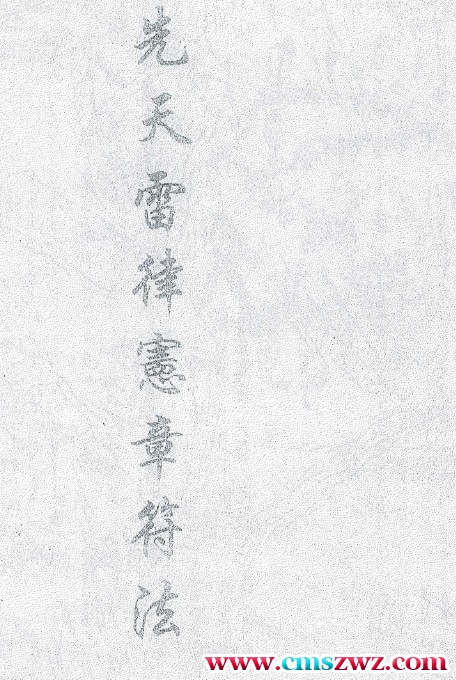 先天雷律憲章符法
www.cmszwz.com